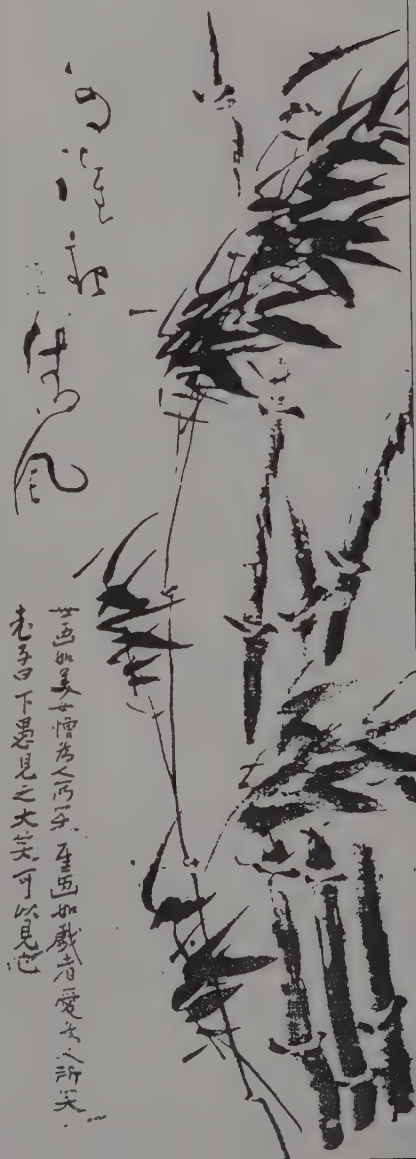 風
世画如美女憎為人所笑厓画如戯者愛為人所笑
老子曰下愚見之大笑可以見也